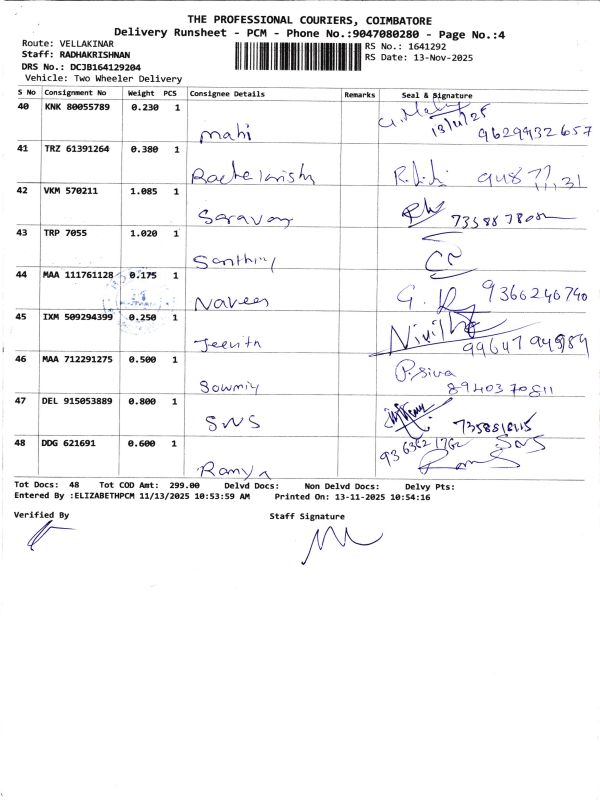 THE PROFESSIONAL COURIERS, COIMBATORE
Delivery Runsheet - PCM - Phone No.:9047080280 - Page No.:4
Route: VELLAKINAR
RS No.: 1641292
Staff: RADHAKRISHNAN
RS Date: 13-Nov-2025
DRS No.: DCJB164129204
Vehicle: Two Wheeler Delivery
S No Consignment No Weight PCS Consignee Details Remarks Seal & Signature
40 KNK 80055789 0.230 1
mahi 13/11/25 9629932657
41 TRZ 61391264 0.380 1
42 VKM 570211 1.085 1
43 TRP 7055 1.020 1
44 MAA 111761128 0.175 1
Naveen 9366246740
45 IXM 509294399 0.250 1
Jeevith
46 MAA 712291275 0.500 1 P. Siva
Sowmiy 8940370811
47 DEL 915053889 0.800 1
SNS
48 DDG 621691 0.600 1 SNS
Ramya
Tot Docs: 48 Tot COD Amt: 299.00 Delvd Docs: Non Delvd Docs: Delvy Pts:
Entered By :ELIZABETHPCM 11/13/2025 10:53:59 AM Printed On: 13-11-2025 10:54:16
Verified By Staff Signature